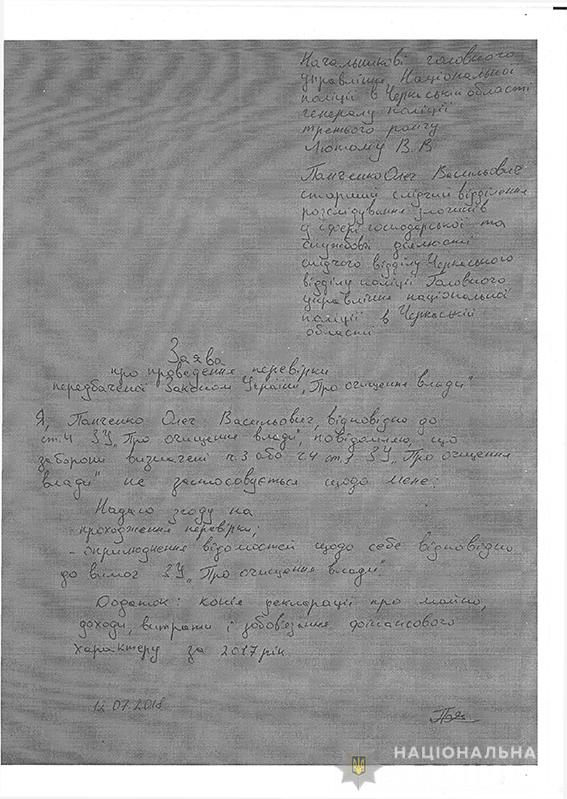 Начальникові головного
управління Національної
поліції в Черкаській області
генералу поліції
третього рангу
Лютому В.В
Панченко Олег Васильович
старший слідчий відділення
розслідування злочинів
у сфері господарської та
службової діяльності
слідчого відділу Черкаського
відділу поліції Головного
управління національної
поліції в Черкаській
області
Заява
про проведення перевірки
передбаченої Законом України „Про очищення влади"
Я, Панченко Олег Васильович, відповідно до
ст.4 ЗУ „Про очищення влади", повідомляю, що
заборони визначені ч.3 або ч4 ст.1 ЗУ „Про очищення
влади" не застосовується щодо мене:
Надаю згоду на
проходження перевірки;
- оприлюднення відомостей щодо себе відповідно
до вимог ЗУ „Про очищення влади".
Додаток: копія декларації про майно,
доходи, витрати і зобов'язання фінансового
характеру за 2017 рік
12.07.2018
НАЦІОНАЛЬНА